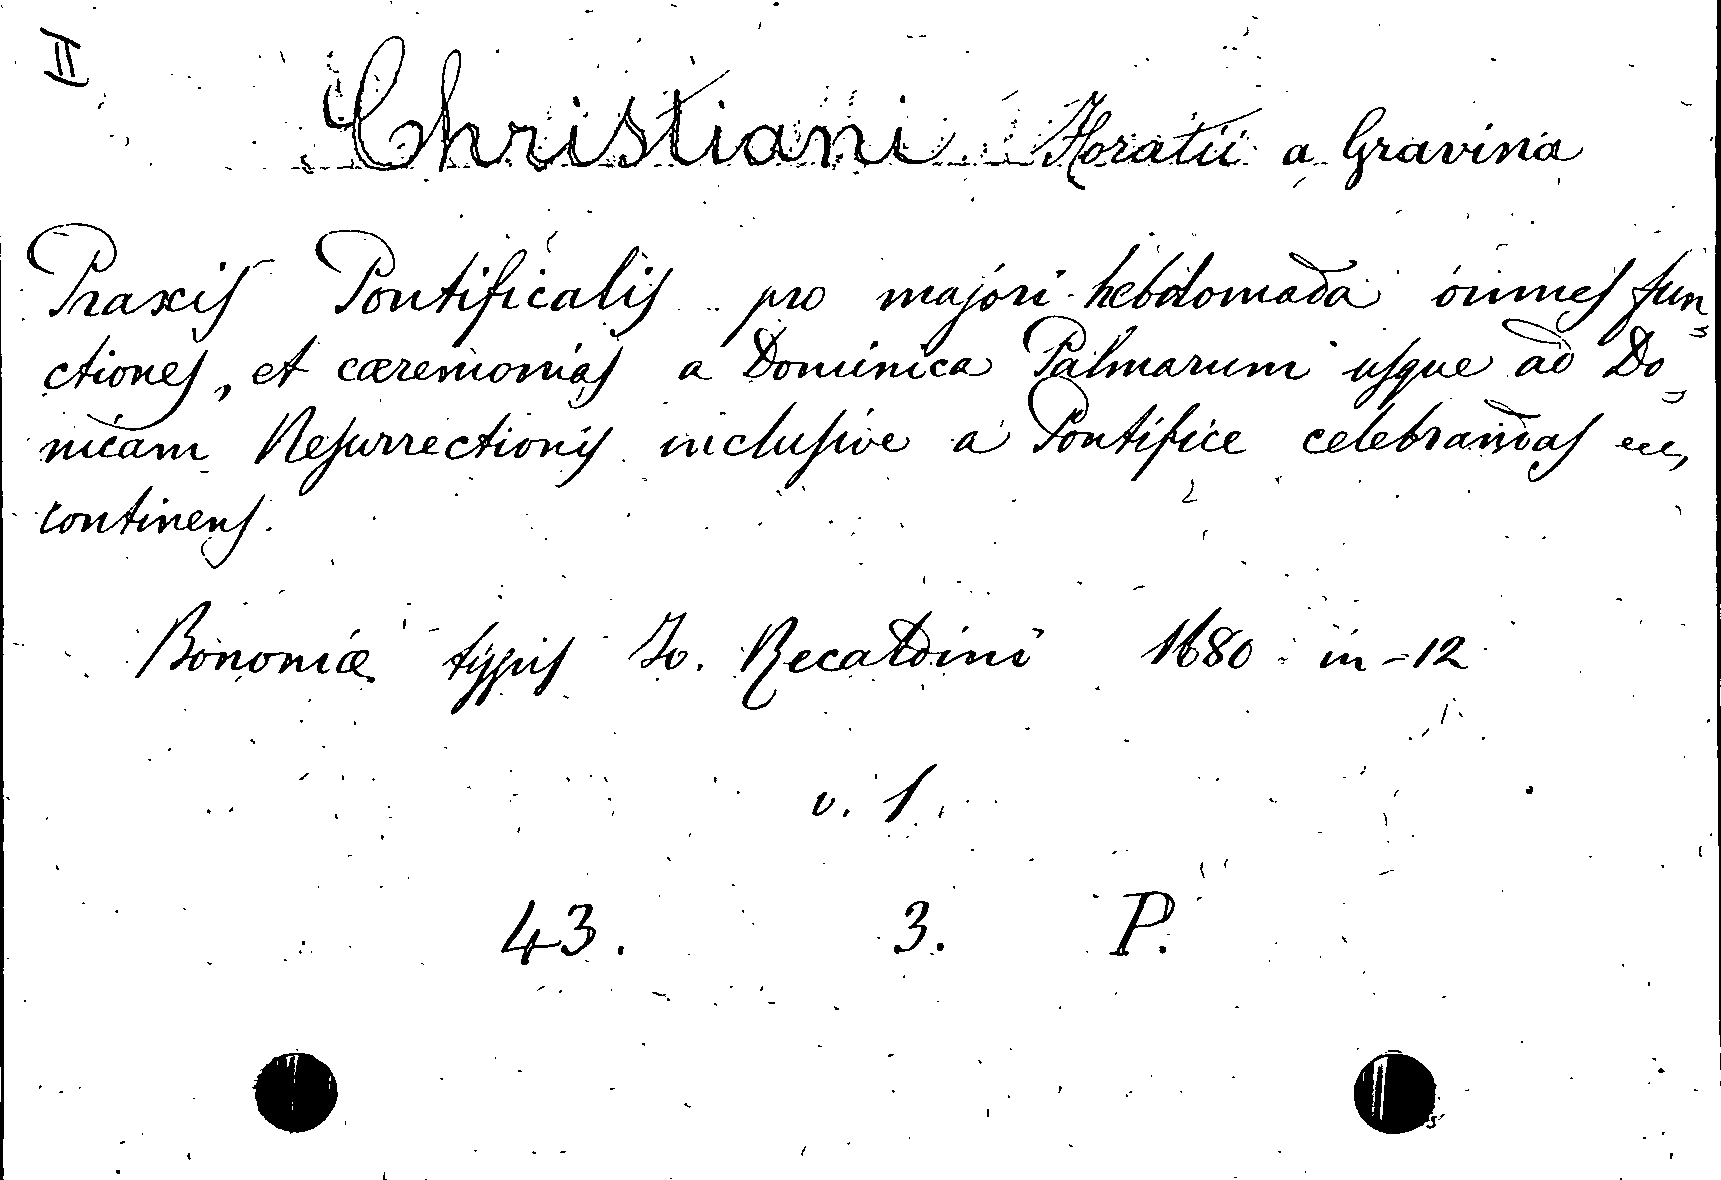 II
Christiani Horatii a Gravina
Praxis Pontificalis pro majori hebdomada omnes fun=
ctiones, et cæremonias a Dominica Palmarum usque ad Do=
nicam Resurrectionis inclusive a Pontifice celebrandas
continens.
Bononiæ typis Jo. Recaldini 1680 in-12
v. 1.
43. 3. P.